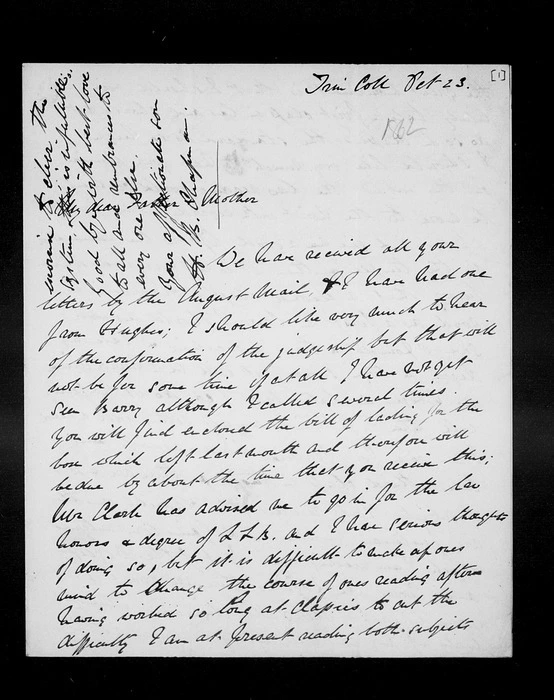 [1]
Trin Coll Oct 23.
1862
My dear Father & Mother
We have received all your
letters by the August Mail, & I have had one
from Hughes; I should like very much to hear
of the confirmation of the judgeship but that will
not be for some time if at all I have not yet
seen Barry although I called several times.
You will find enclosed the bill of lading for the
box which left last month and therefore will
be due by about the time that you receive this;
Mr Clark has advised me to go in for the law
honors & degree of L.L.B. and I have serious thoughts
of doing so, but it is difficult to make up ones
mind to change the course of ones reading after
having worked so long at Classics to cut the
difficulty I am at present reading both subjects
to cheer the
system, this is infallible.
Good bye with best love
to all and remembrances to
every one else.
Your affectionate son
H. B. Chapman